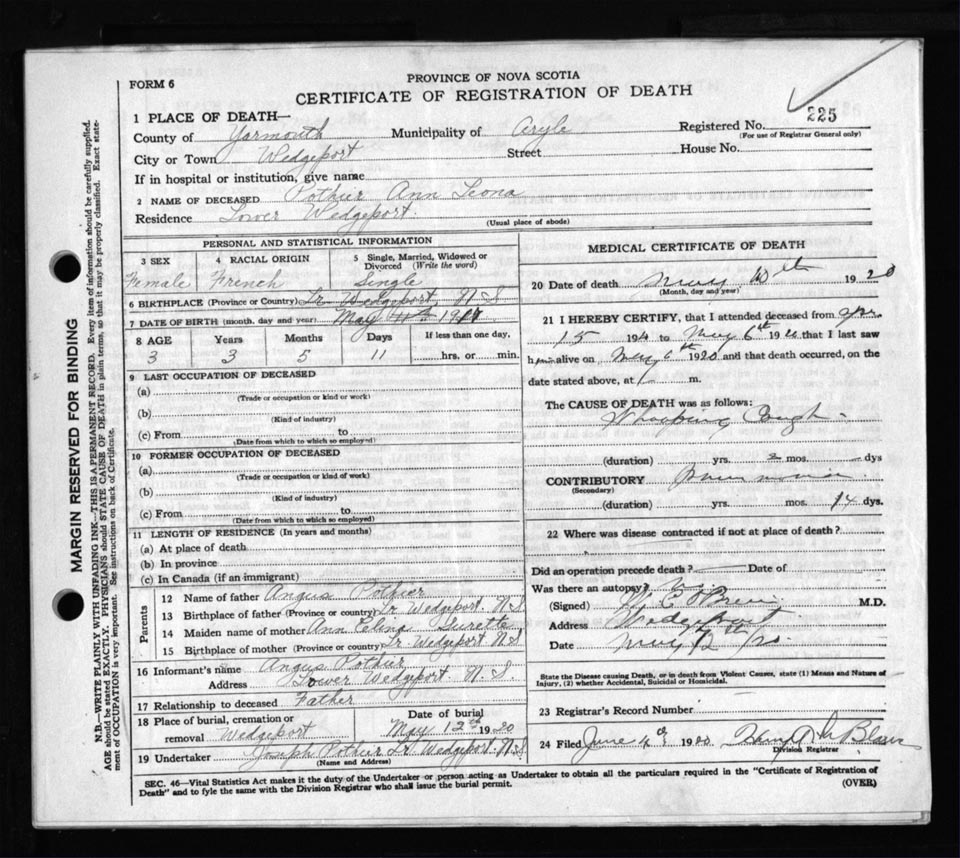 PROVINCE OF NOVA SCOTIA
FORM 6
CERTIFICATE OF REGISTRATION OF DEATH
1 PLACE OF DEATH—
225
County of Yarmouth Municipality of Argyle Registered No.
(For use of Registrar General only)
City or Town Wedgeport Street House No.
If in hospital or institution, give name
2 NAME OF DECEASED Pothier Ann Leona
Residence Lower Wedgeport.
(Usual place of abode)
PERSONAL AND STATISTICAL INFORMATION
3 SEX 4 RACIAL ORIGIN 5 Single, Married, Widowed or Divorced (Write the word)
Female French Single
6 BIRTHPLACE (Province or Country) Lr. Wedgeport, N.S
7 DATE OF BIRTH (month, day and year) May
8 AGE Years Months Days If less than one day,
3 3 5 11 hrs. or min.
9 LAST OCCUPATION OF DECEASED
(a)
(Trade or occupation or kind or work)
(b)
(Kind of industry)
(c) From to
(Date from which to which so employed)
10 FORMER OCCUPATION OF DECEASED
(a)
(Trade or occupation or kind of work)
(b)
(Kind of industry)
(c) From to
(Date from which to which so employed)
11 LENGTH OF RESIDENCE (In years and months)
(a) At place of death
(b) In province
(c) In Canada (if an immigrant)
Parents
12 Name of father Angus Pothier
13 Birthplace of father (Province or country) Lr. Wedgeport. N.S
14 Maiden name of mother Ann Celina Surette
15 Birthplace of mother (Province or country) Lr. Wedgeport N S
16 Informant's name Angus Pothier
Address Lower Wedgeport. N. S.
17 Relationship to deceased Father
18 Place of burial, cremation or removal Wedgeport
Date of burial May 12th 1920
19 Undertaker Joseph Pothier Lr. Wedgeport. N.S
(Name and Address)
MEDICAL CERTIFICATE OF DEATH
20 Date of death May 10th 1920
(Month, day and year)
21 I HEREBY CERTIFY, that I attended deceased from Apr.
15 19 to May 6th 1920 that I last saw
h alive on May 6th 1920 and that death occurred, on the
date stated above, at m.
The CAUSE OF DEATH was as follows:
Whooping Cough
(duration) yrs. 2 mos. dys
CONTRIBUTORY Pneumonia
(Secondary)
(duration) yrs. mos. 14 dys.
22 Where was disease contracted if not at place of death?
Did an operation precede death? Date of
Was there an autopsy? No
(Signed) M.D.
Address Wedgeport
Date May 12th 20
State the Disease causing Death, or in death from Violent Causes, state (1) Means and Nature of
Injury, (2) whether Accidental, Suicidal or Homicidal.
23 Registrar's Record Number
24 Filed June 4th 19
Division Registrar
SEC. 46—Vital Statistics Act makes it the duty of the Undertaker or person acting as Undertaker to obtain all the particulars required in the "Certificate of Registration of
Death" and to fyle the same with the Division Registrar who shall issue the burial permit. (OVER)
MARGIN RESERVED FOR BINDING
N.B.—WRITE PLAINLY WITH UNFADING INK—THIS IS A PERMANENT RECORD. Every item of information should be carefully supplied.
AGE should be stated EXACTLY. PHYSICIANS should STATE CAUSE OF DEATH in plain terms, so that it may be properly classified. Exact state-
ment of OCCUPATION is very important. See instructions on back of Certificate.